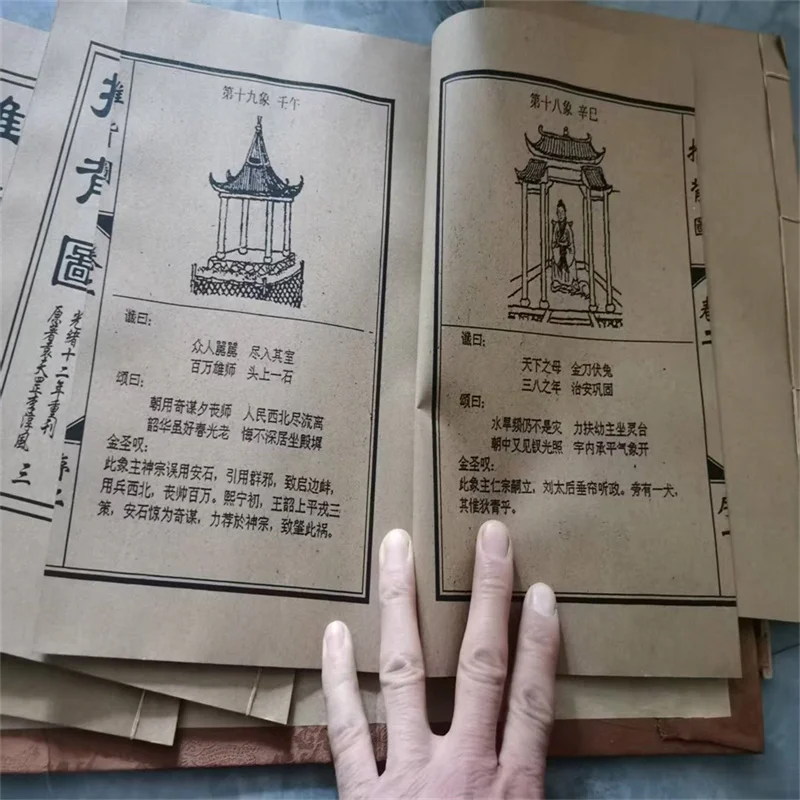 推背圖
卷二
第十八象 辛巳
谶曰:
天下之母 金刀伏兔
三八之年 治安巩固
颂曰:
水旱频仍不是灾 力扶幼主坐灵台
朝中又见钗光照 宇内承平气象开
金圣叹:
此象主仁宗嗣立,刘太后垂帘听政。旁有一犬,
其惟狄青乎。
第十九象 壬午
谶曰:
众人嚣嚣 尽入其室
百万雄师 头上一石
颂曰:
朝用奇谋夕丧师 人民西北尽流离
韶华虽好春光老 悔不深居坐殿墀
金圣叹:
此象主神宗误用安石,引用群邪,致启边衅,
用兵西北,丧帅百万。熙宁初,王韶上平戎三
策,安石惊为奇谋,力荐於神宗,致肇此祸。
推背圖
光绪十二年重刊
原著袁天罡李淳風
三
推
三